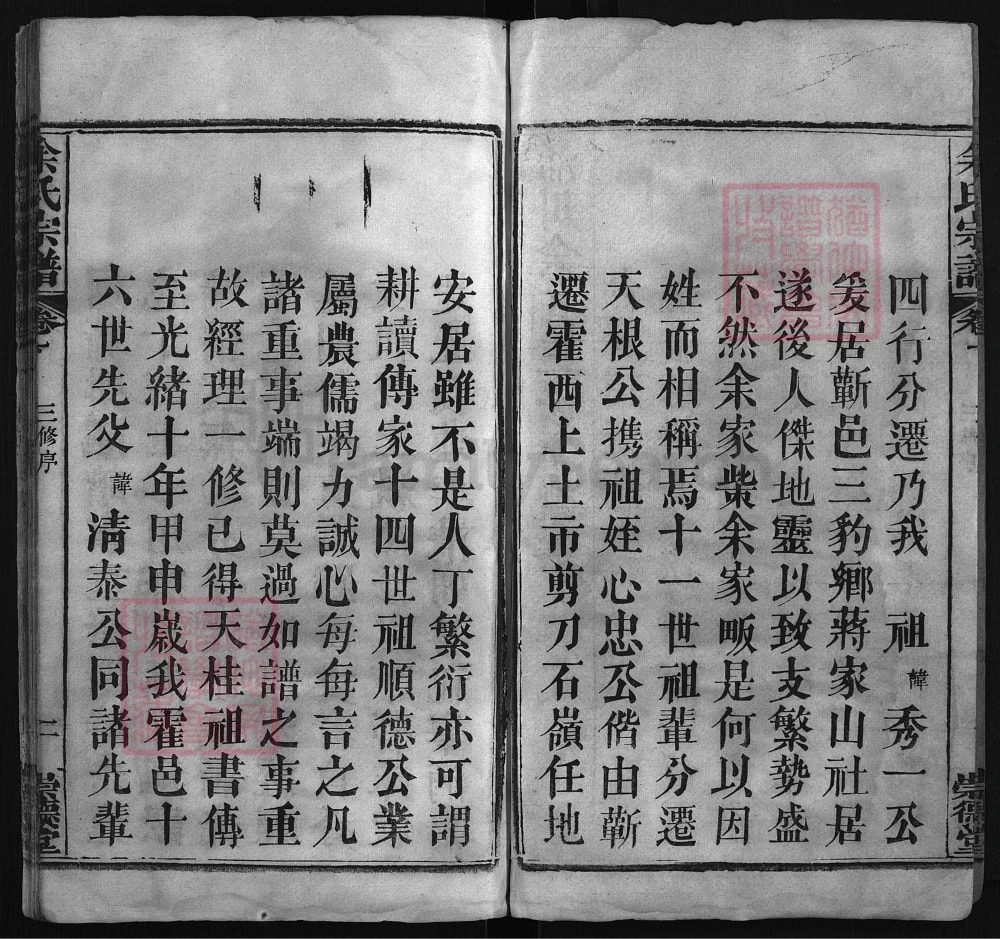 四行分遷乃我 祖諱秀一公
爰居蘄邑三豹鄉蔣家山社居
遂後人傑地靈以致支繁勢盛
不然余家柴余家畈是何以因
姓而相稱焉十一世祖輩分遷
天根公携祖姪心忠公偕由蘄
遷霍西上土市剪刀石嶺任地
安居雖不是人丁繁衍亦可謂
耕讀傳家十四世祖順德公業
屬農儒竭力誠心每每言之凡
諸重事端則莫過如譜之事重
故經理一修已得天桂祖書傳
至光緒十年甲申歲我霍邑十
六世先父諱清泰公同諸先輩
余氏宗譜 卷 三修序 二 崇德堂
余氏宗譜 卷 崇德堂